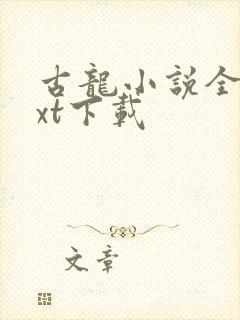 古龍小說全
xt下載
文章